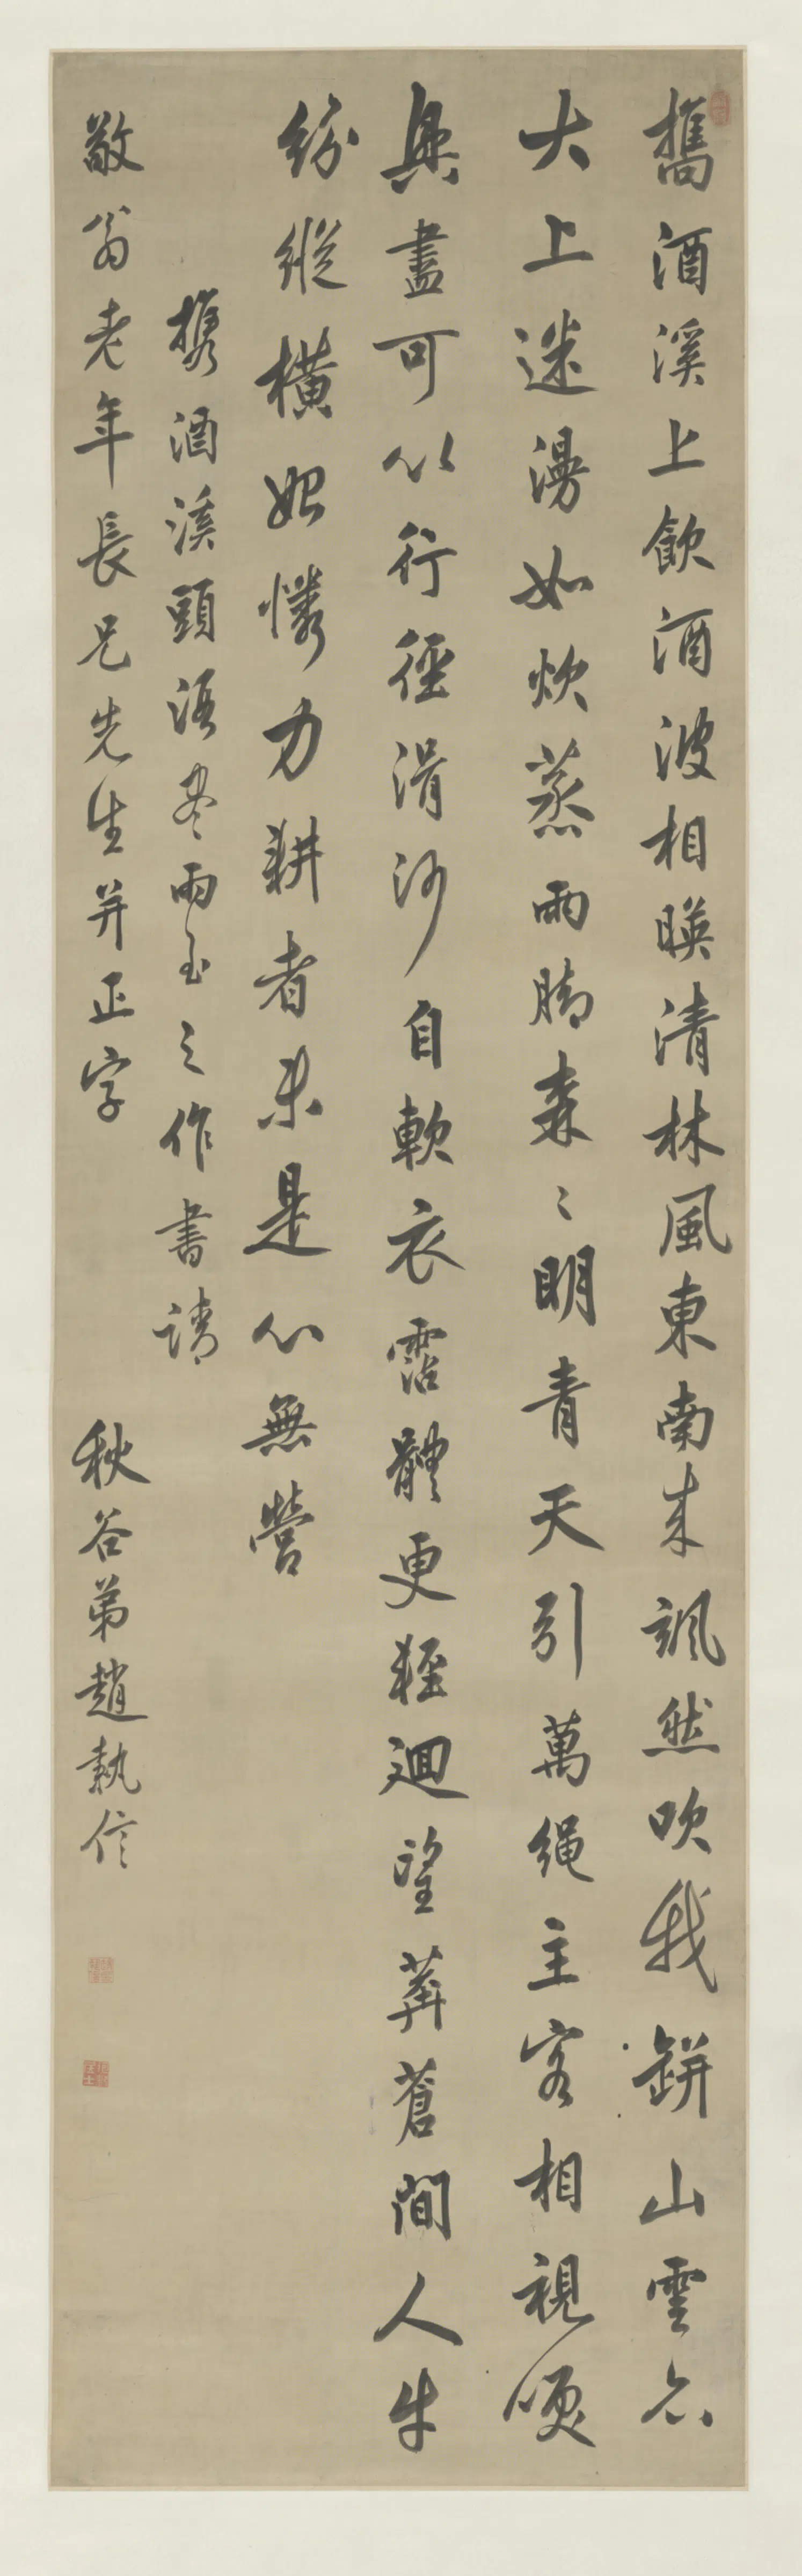 攜酒溪上飲酒波相暎清林風東南来颯然吹我缾山雲亦
大上迷漫如炊蒸雨腳森〻明青天引萬繩主客相視頌
興盡可以行徑滑沙自軟衣霑體更輕迴望莽蒼間人牛
紛縱橫始憐力耕者未是心無營
携酒溪頭語尽雨至之作書請
敬翁老年長兄先生并正字
秋谷弟趙執信